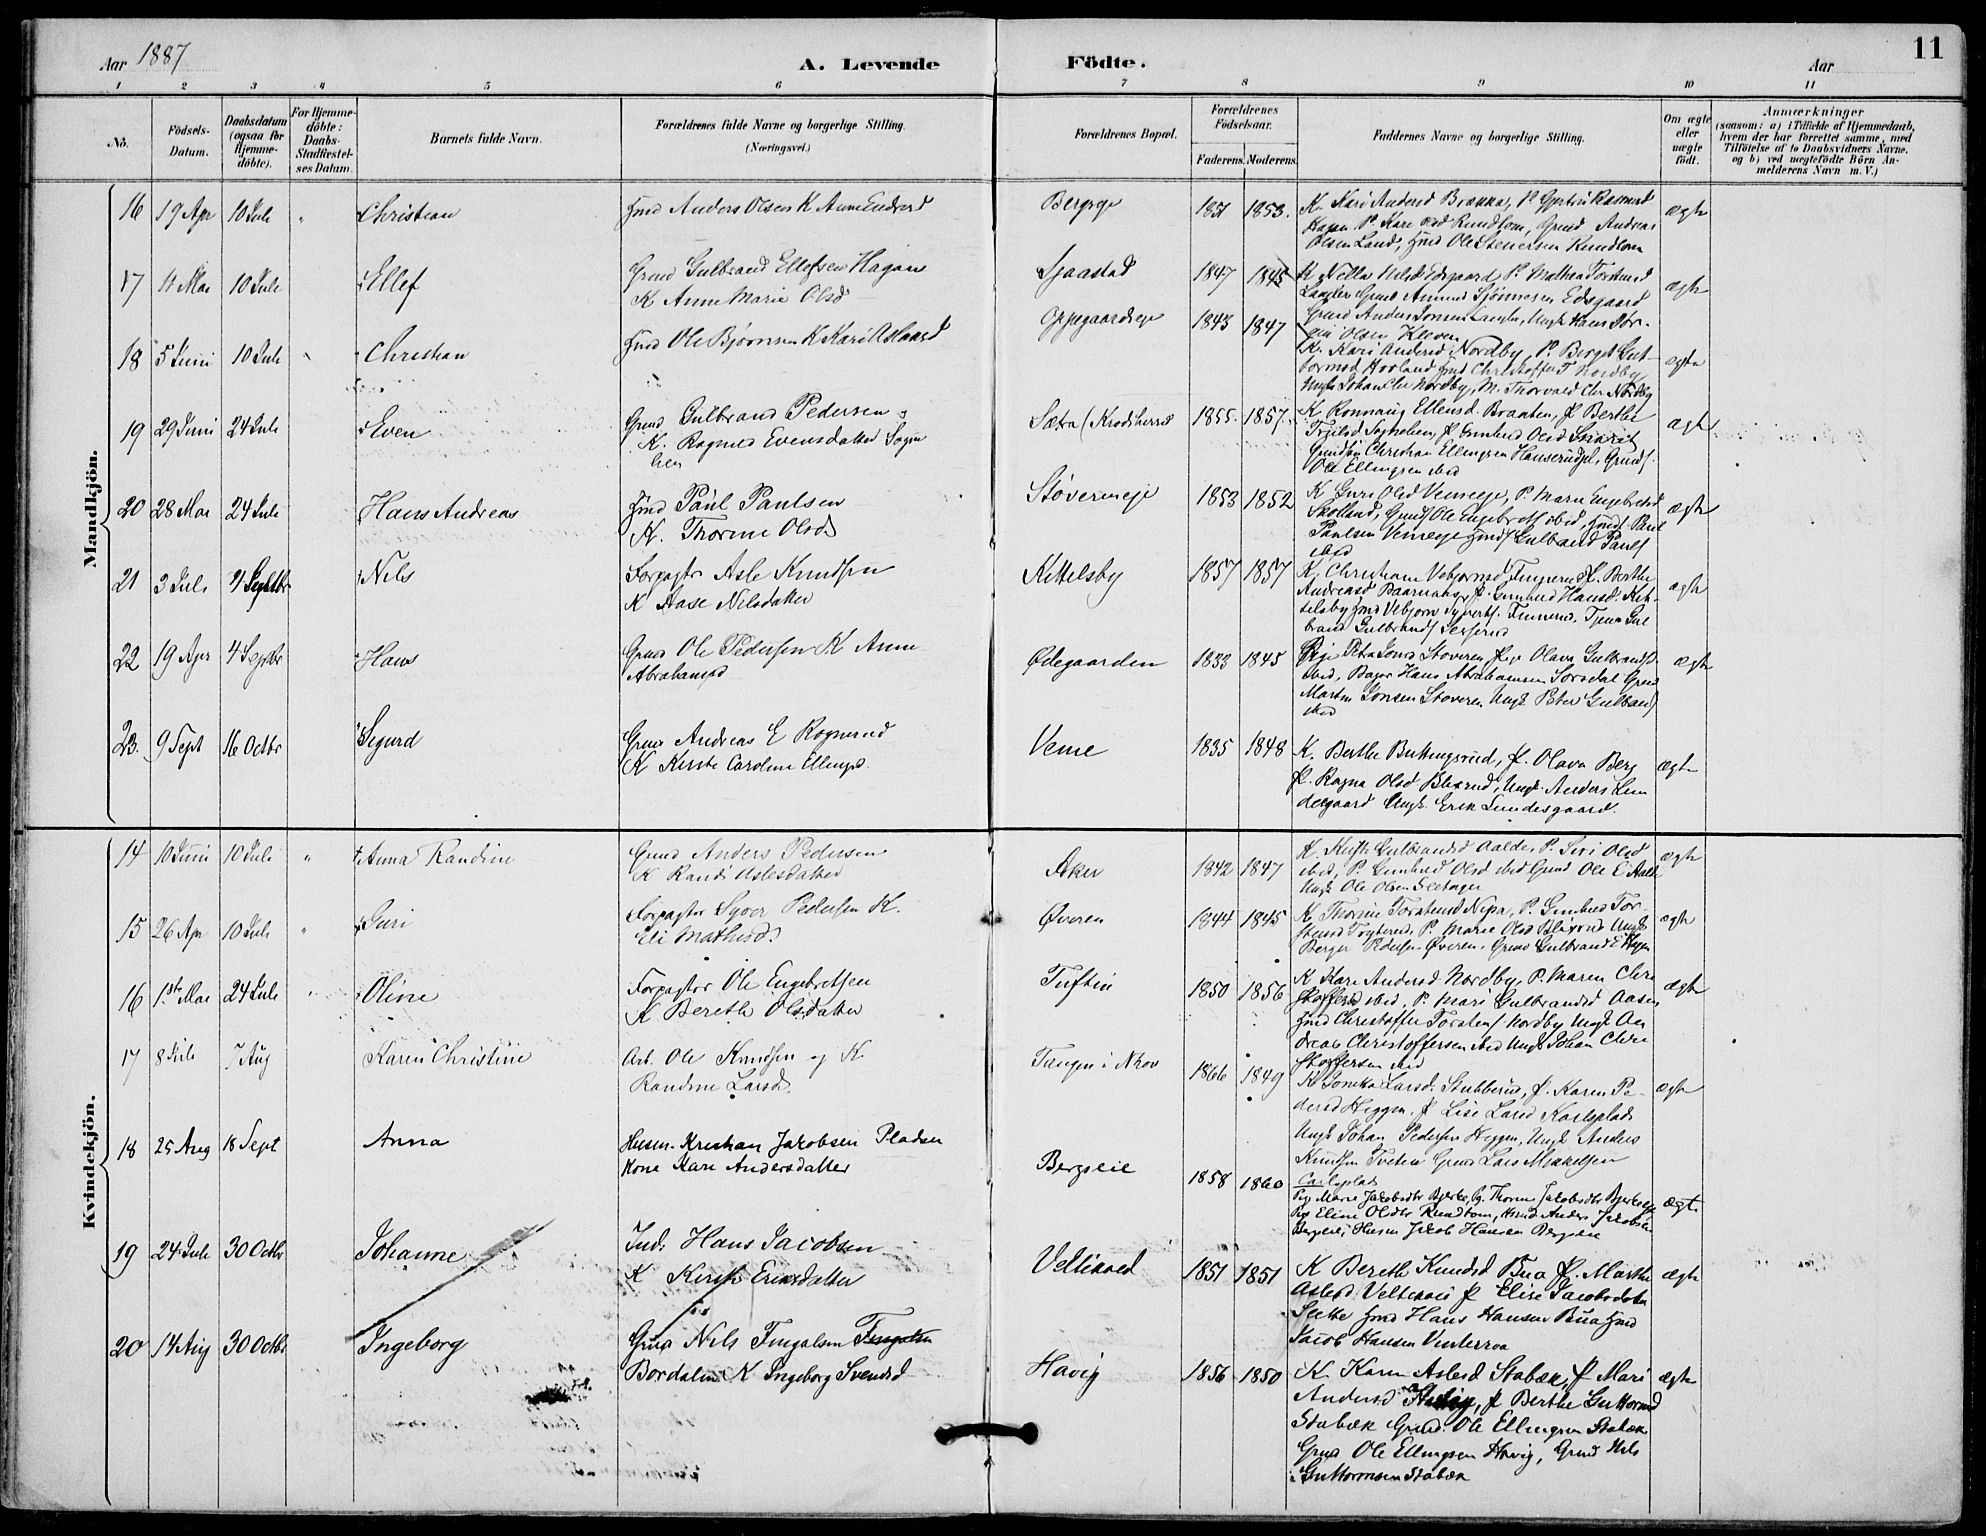 Aar 1887
A. Levende Födte.
Aar
11
1 2 3 4 5 6 7 8 9 10 11
No.
Födsels-Datum.
Daabsdatum (ogsaa for Hjemme-döbte).
For Hjemme-döbte: Daabs-Stadfestel-ses Datum.
Barnets fulde Navn.
Forældrenes fulde Navne og borgerlige Stilling. (Næringsvei.)
Forældrenes Bopæl.
Forældrenes Födselsaar.
Faderens. Moderens.
Faddernes Navne og borgerlige Stilling.
Om ægte eller uægte födt.
Anmærkninger
(saasom: a) i Tilfælde af Hjemmedaab,
hvem der har forrettet samme, med
Tilföielse af to Daabsvidners Navne,
og b) ved uægtefödte Börn An-
melderens Navn m. V.)
Mandkjön.
16 19 Apr 10 Juli " Christian
Hmd Anders Olsen K Anne Endresd
Bergseje 1851 1853.
K. Kari Andersd Brænna, P.
Hagen P. Kari Olsd Rundtom, Grund Andreas
Olsen Lande, Hmd Ole Stenersen Rundtom
ægte
17 10 Juli Ellef
Grund Gulbrand Ellefsen Hagan
K Anne Marie Olsd
Sjaastad 1847 1845
Edsgaard, P. Mathea Torstensd
Grund Amund Edsgaard
Grund Anders Jonsen Ungk Hans Jør-
gin Olsen Kleven
ægte
18 5 Juni 10 Juli " Christian
Hmd Ole Bjørnsen K Kari Aslaksd
Oppegaardseje 1843 1847
K. Kari Andersd Nordby, P. Berget Gut-
tormsd Hovland Hmd Christoffer T Nordby
Ungk Johan Chr Nordby, M. Thorvald Chr Nordby
ægte
19 29 Juni 24 Juli Even
Grund Gulbrand Pedersen
K. Ragnild Evensdatter Sogne
lien
Sætra (Krodsherred 1855. 1857.
K Ronnaug Ellensd. Braaten, P Berthe
Sognelien, P. Gunhild Olsd
Christian Ellingsen Grund
Ole Ellingsen ibid
ægte
20 28 Mai 24 Juli Hans Andreas
Hmd Paul Paulsen
K. Thorine Olsd
Støverneje 1853 1852
K Guri Olsd Vemeeje, P. Maren Engebretsd
Skotland, Grund Ole Engebretsf ibid, Hmd Paul
Paulsen Vemeeje Hmd Gulbrand Paulsf
ibid
ægte
21 3 Juli 4 Septbr Nils
Forpagter Asle Knudsen
K Aase Nilsdatter
Kittelsby 1857 1857
K. Christiane Vebjørnsd P. Berthe
Andreasd P. Gunhild Hansd. Kit-
telsby Hmd Vebjørn Syvertsf. Tjener Gul
brand Gulbrands
ægte
22 19 Apr 4 Septbr Hans
Grund Ole Pedersen K Anne
Abrahamsd
Ødegaarden 1833 1845
Pige Petra Jonsd Støveren Pige Olava Gulbrandsd.
ibid, Bager Hans Abrahamsen Sorsdal Grund
Martin Jonsen Støveren Ungk Peter Gulbrandsf
ibid
ægte
23. 9 Sept 16 Octbr Sigurd
Grund Andreas E Rognerud
K Kirsti Caroline Ellingsd.
Veme 1835 1848
K. Berthe Buttingsrud, P. Olava Berg
P. Ragna Olsd Blixrud, Ungk. Anders Lun
desgaard Ungk. Erik Lundesgaard.
ægte
Kvindekjön.
14 10 Juni 10 Juli " Anna Randine
Grund Anders Pedersen
K Randi Aslesdatter
Aker 1842 1847
K. Kirsti Gulbrandsd Aalde, P. Siri Olsd
ibid, P. Gunhild Olsd ibid Grund Ole E Aalde
Ungk Ole Olsen Sletager
ægte
15 26 Apr 10 Juli " Guri
Forpagter Syver Pedersen K.
Eli Mathisd.
Øveren 1844 1845
K Thorine Torstensd Nipa, P. Gunhild Tor-
stensd P. Marie Olsd Blixrud Ungk
Berger Pedersen Øveren, Grund Gulbrand E
ægte
16 1ste Mai 24 Juli " Oline
Forpagter Ole Engebretsen
K Berethe Olsdatter
Tuftin 1850 1856
K Kari Andersd Nordby, P. Maren Chri
stoffersd ibid, P. Mari Gulbrandsd Aasen
Hmd Christoffer Torstensf Nordby Ungk An
dreas Christoffersen ibid Ungk Johan Chri
stoffersen ibid
ægte
17 8 Juli 7 Aug Karen Christine
Arb. Ole Knudsen og K
Randine Larsd
Tangen i Nkov 1866 1849
K Larsd. Stubberud, P. Karen Pe-
dersd Heggen. P Lise Larsd Karlsplads
Ungk Johan Pedersen Heggen, Ungk Anders
Knudsen Tveten Grund Lars Mikkelsen
Carlsplads
ægte
18 25 Aug 18 Sept Anna
Husm. Kristian Jakobsen Pladsen
Kone Kari Andersdatter
Bergseie 1858 1860
Pige Marie Jakobsdtr Bjerke, Pg. Thorine Jakobsdtr Bjerkeeje
Pige Eline Olsdtr Rundtom, Hmd Anders Jakobsen
Bergseie, Husm Jakob Hansen Bergseie
ægte
19 24 Juli 30 Octbr Johanne
Inds Hans Jacobsen
K Kirsti Eriksdatter
Veltisved 1851 1851
K Berethe Knudsd Bua P. Marthe
Aslesd. P Elise Jacobsdatter
Slette Hmd Hans Hansen Bua Hmd
Jacob Hansen Vinterroa
ægte
20 14 Aug 30 Octbr Ingeborg
Grund Nils Fingalsen Fingalsen
Bordalen K Ingeborg Svendsd
Havig 1856 1850
K Karen Aslesd Stabæk, P Mari
Andersd P Berthe Guttormsd
Stabæk Grund. Ole Ellingsen Stabæk
Grund Ole Ellingsen Havig, Grund Nils
Guttormsen Stabæk
ægte